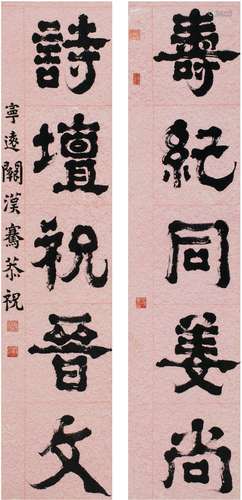 壽紀同姜尚
詩壇祝晉文
寧遠闞漢騫恭祝